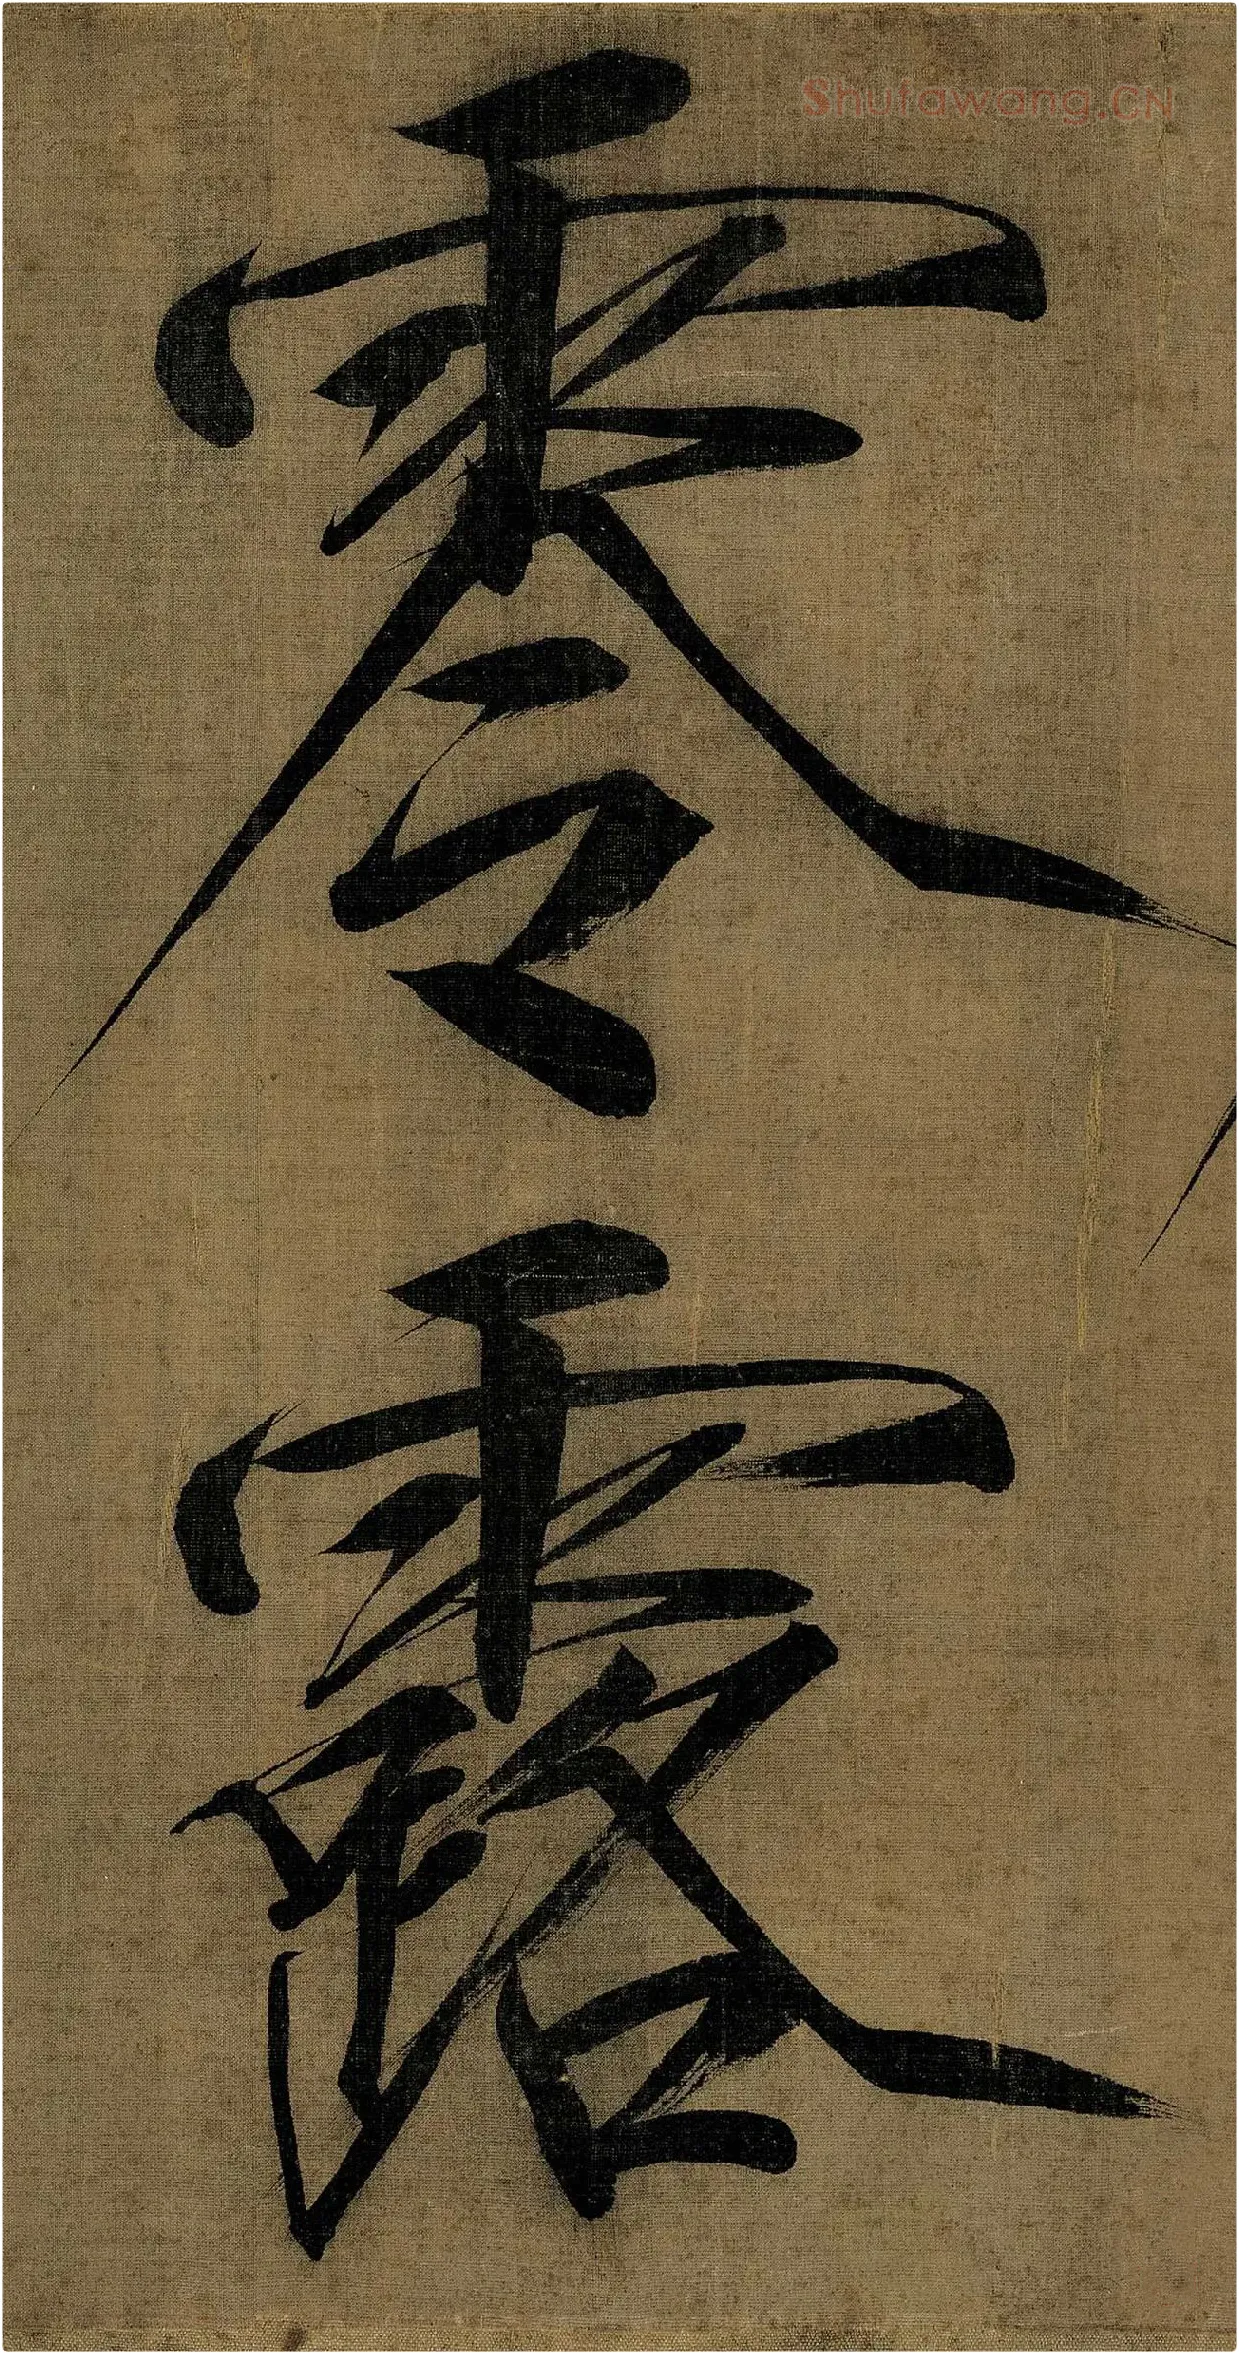 Shufawang.CN
零露